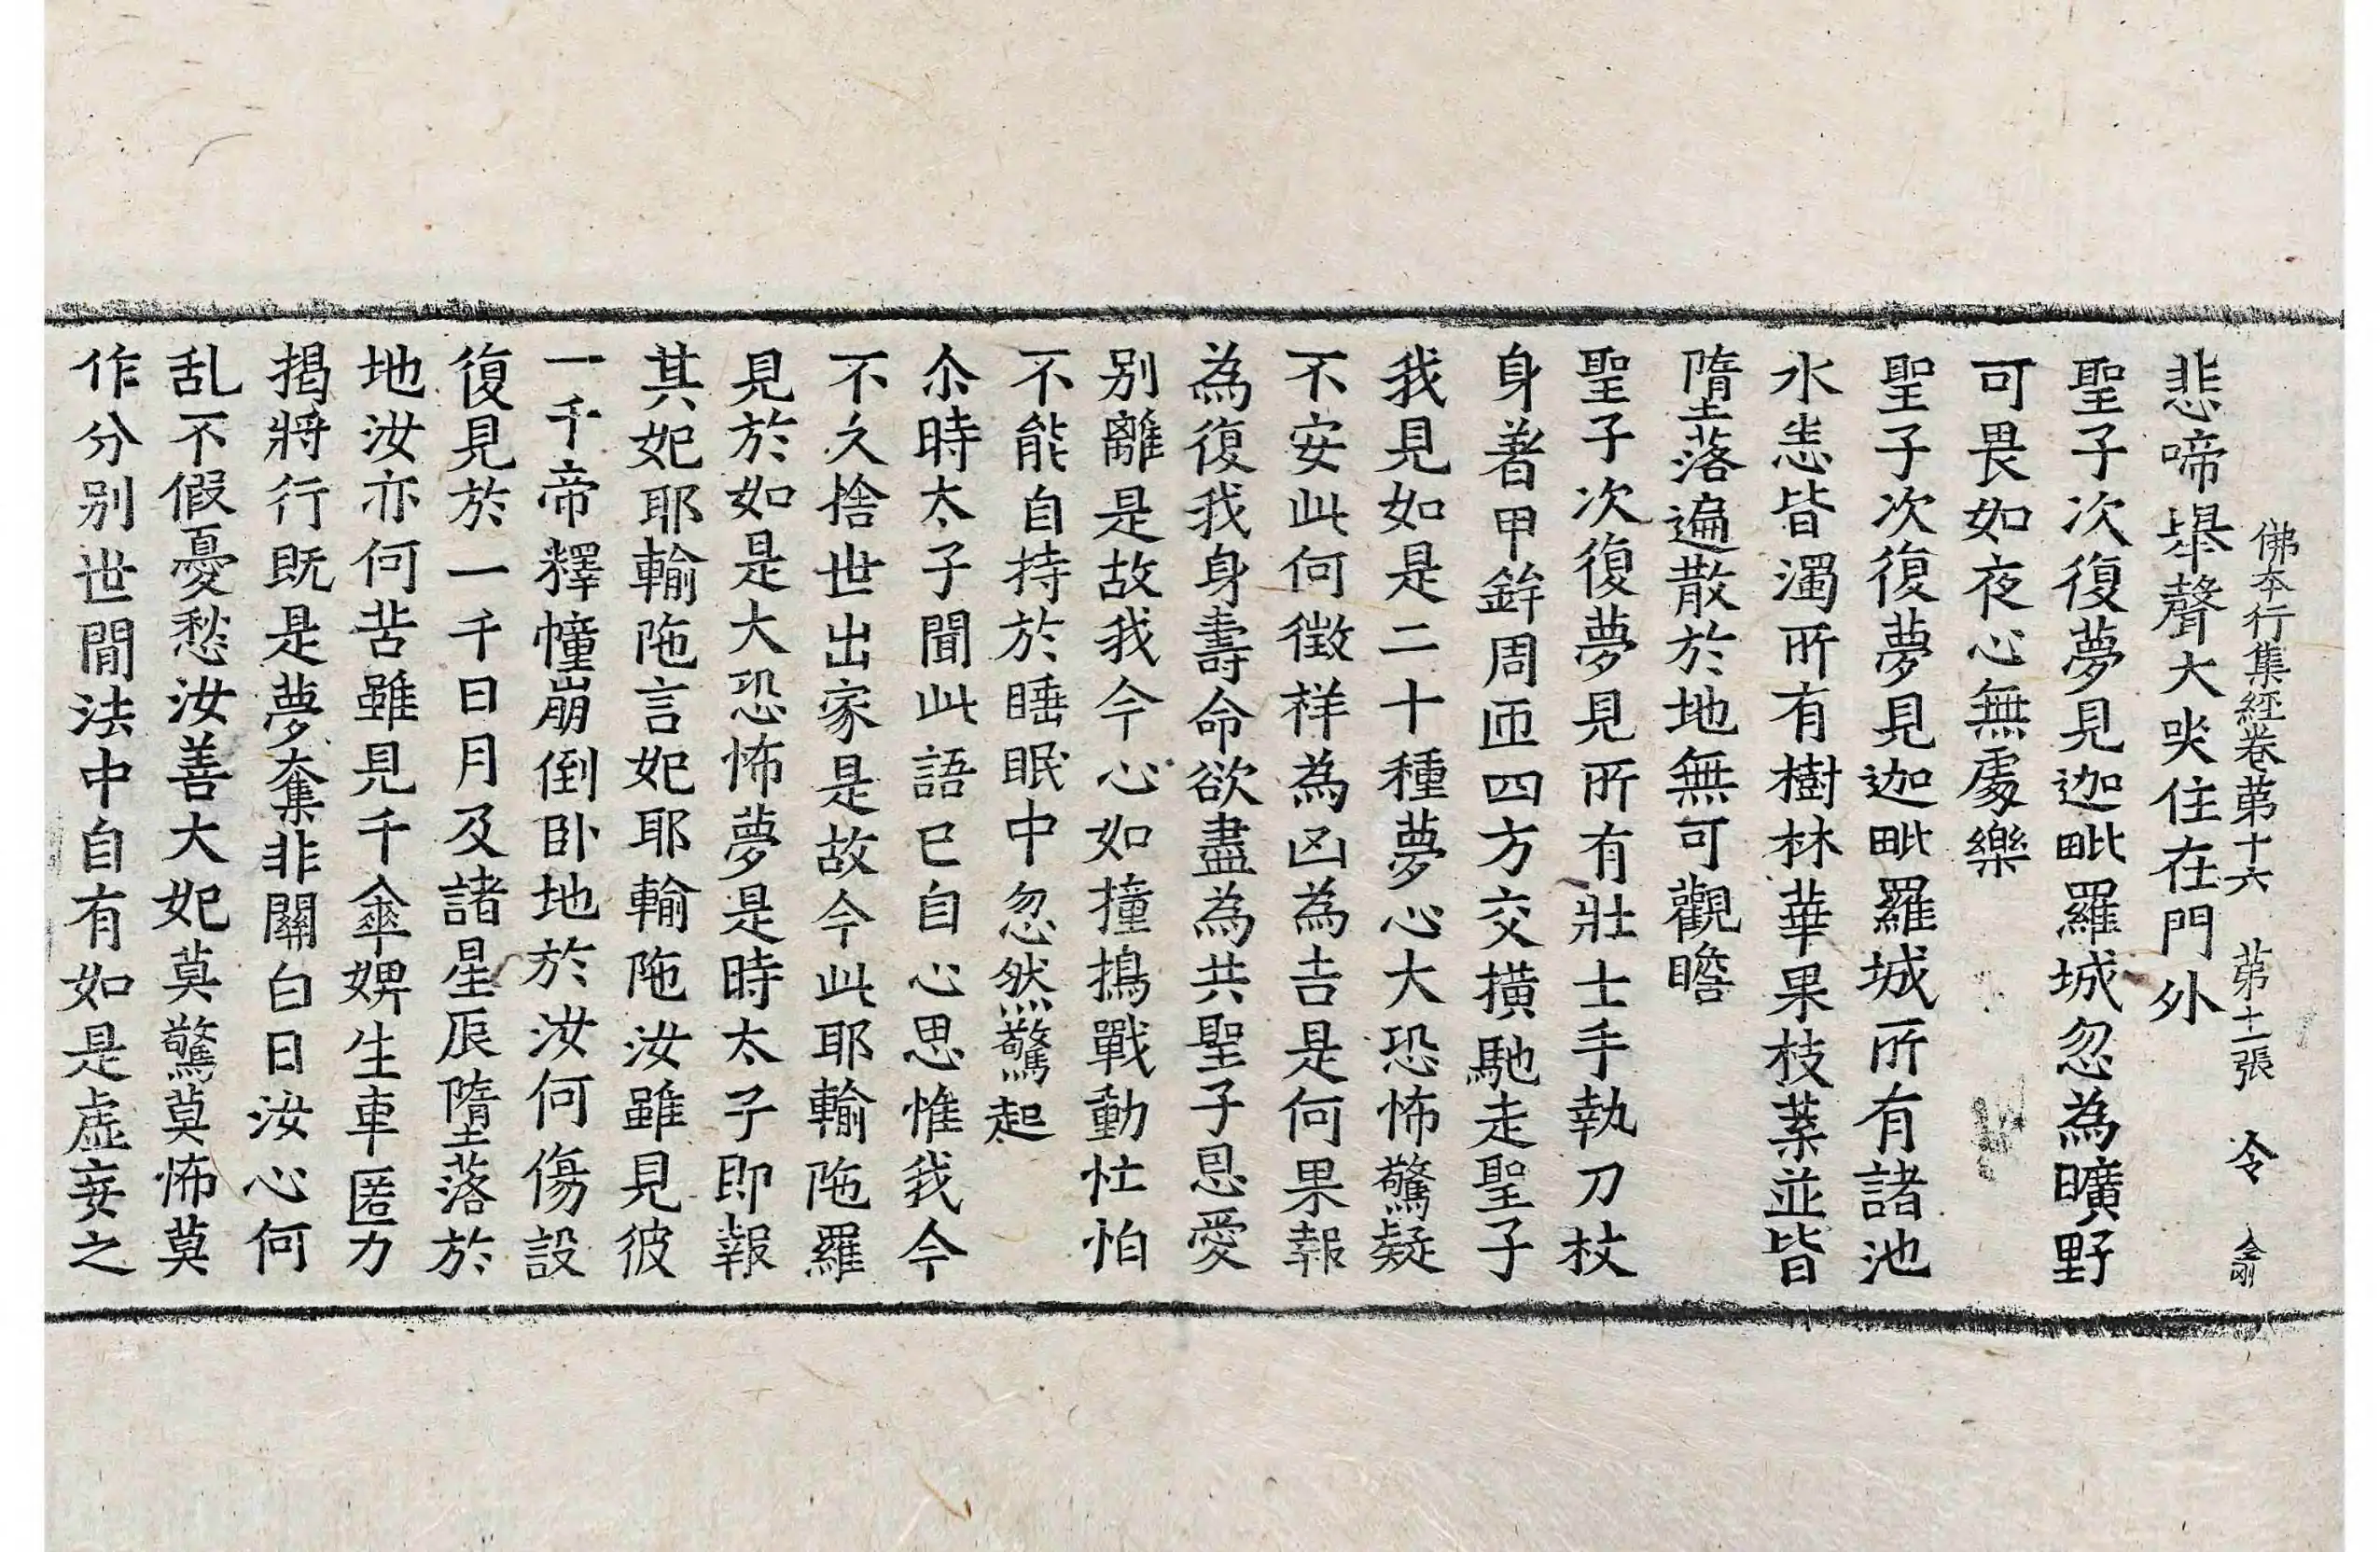 佛本行集經卷第十六 第十一張 令 金剛
悲啼舉聲大哭住在門外
聖子次復夢見迦毗羅城忽為曠野
可畏如夜心無處樂
聖子次復夢見迦毗羅城所有諸池
水恙皆濁所有樹林華果枝葉並皆
墮落遍散於地無可觀瞻
聖子次復夢見所有壯士手執刀杖
身著甲鉾周匝四方交撗馳走聖子
我見如是二十種夢心大恐怖驚疑
不安此何徵祥為凶為吉是何果報
為復我身壽命欲盡為共聖子恩愛
別離是故我今心如撞擣戰動忙怕
不能自持於睡眠中忽然驚起
尒時太子聞此語已自心思惟我今
不久捨世出家是故今此耶輸陁羅
見於如是大恐怖夢是時太子即報
其妃耶輸陁言妃耶輸陁汝雖見彼
一千帝釋幢崩倒卧地於汝何傷設
復見於一千日月及諸星辰墮落於
地汝亦何苦雖見千傘婢生車匿力
揭將行既是夢奪非關白日汝心何
乱不假憂愁汝善大妃莫驚莫怖莫
作分別世閒法中自有如是虛妄之